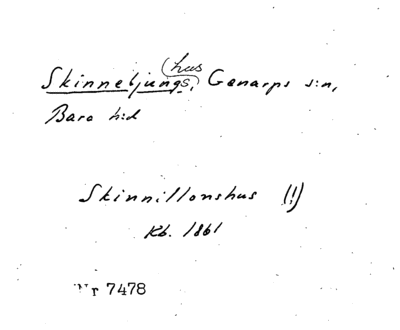 Skinneljungs(hus), Genarps s:n,
Bara h:d
Skinnillonshus (!)
Kb. 1861
Nr 7478